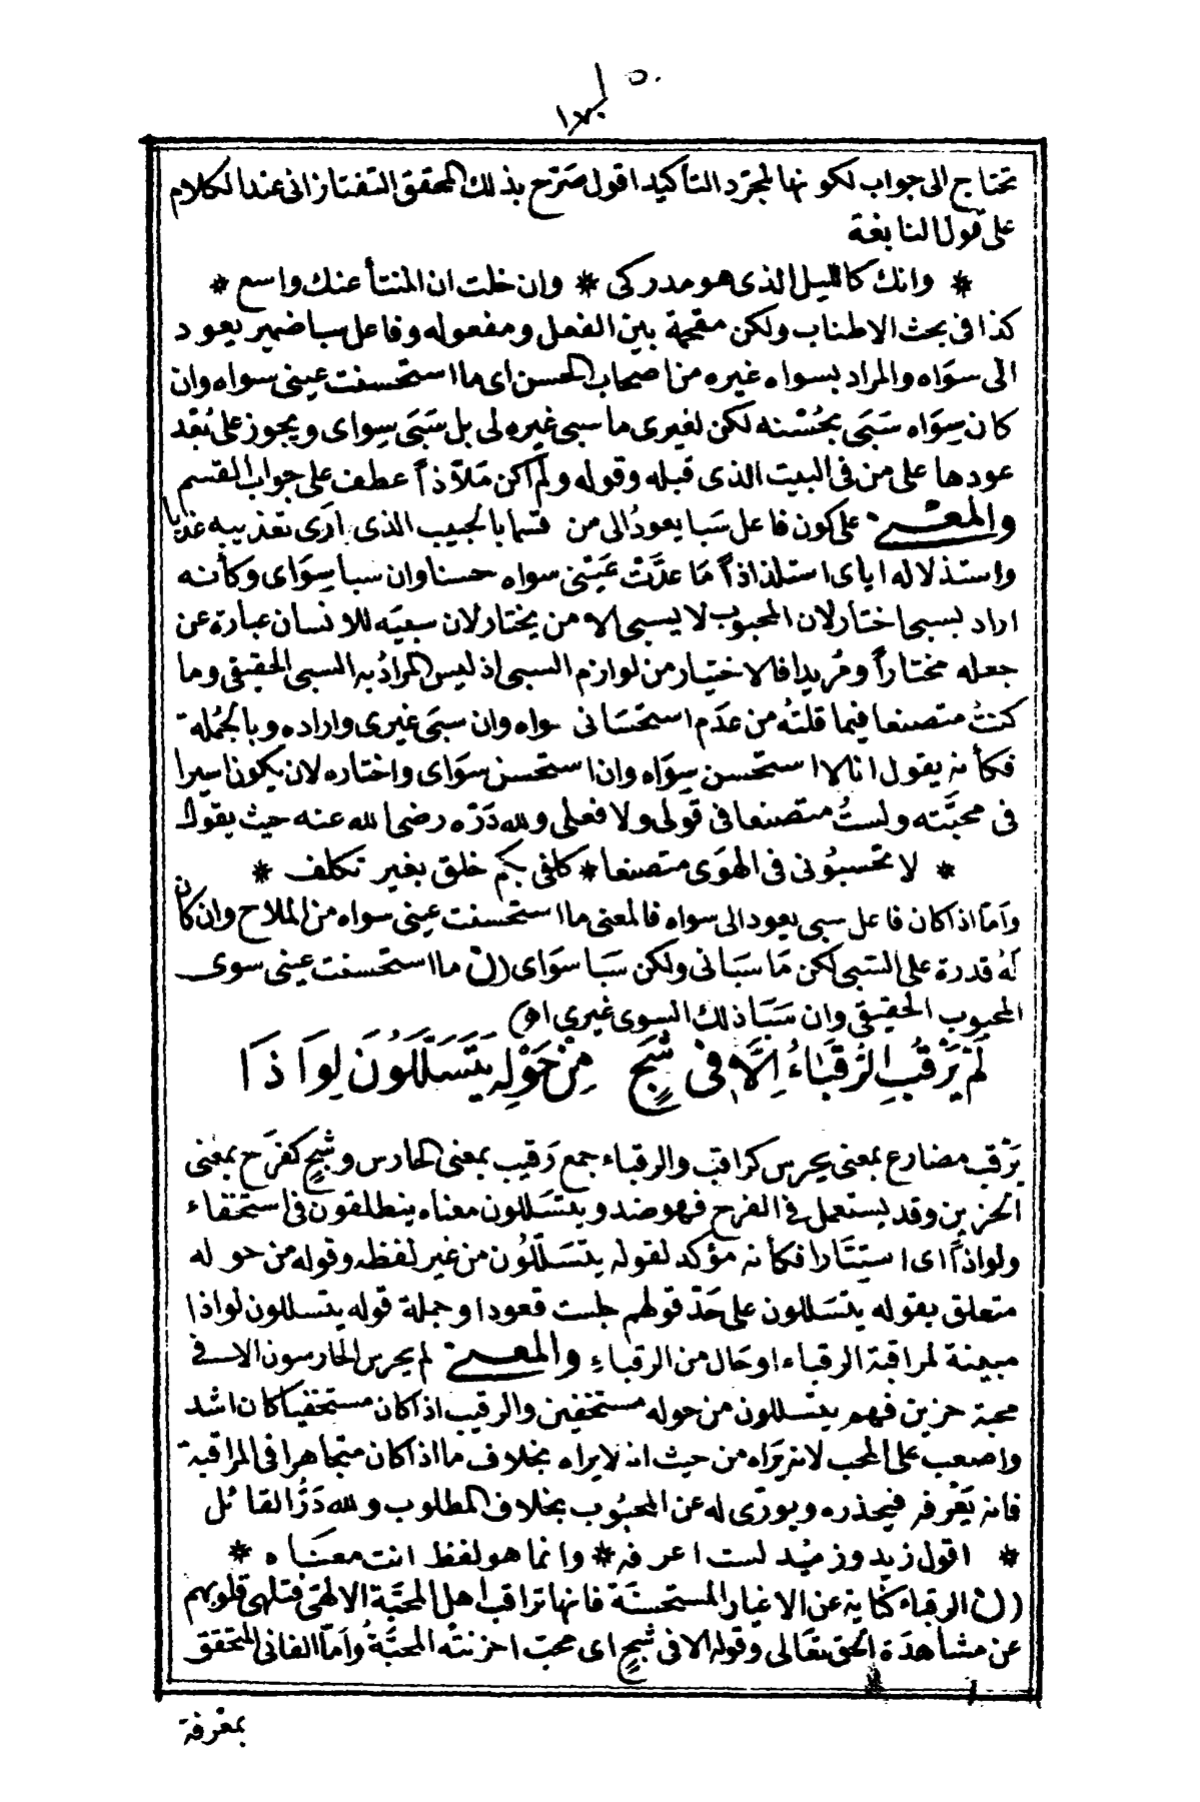 ١٥٠
تحتاج الى جواب لكونها لمجرّد التأكيد اقول صرّح بذلك المحقق التفتازانى عند الكلام
على قول النابغة
* وانك كالليل الذى هو مدركى * وان خلت ان المنتأ عنك واسع *
كذا فى بحث الاطناب ولكن مقحمة بين الفعل ومفعوله وفاعل سبا ضمير يعود
الى سوَاه والمراد بسواه غيره من اصحاب الحسن اى ما استحسنت عينى سواه وان
كان سِوَاه سَبَى بحُسْنه لكن لغيرى ما سبى غيره لى بل سَبَى سِواى ويجوز على بُعْد
عودها على من فى البيت الذى قبله وقوله ولم اكن مَلاّذاً عطف على جواب القسم
والمعنى على كون فاعل سَبا يعودُ الى من قسما بالحبيب الذى ارَى تعذيبه عذبا
واستذلاله اياى استلذاذاً مَا عدَّتْ عَيْنى سواه حسنا وان سبا سِوَاى وكأنه
اراد بسبى اختار لان المحبوب لا يسبى الا من يختار لان سبيَه للانسان عبارة عن
جعله مختاراً ومُريدا فالاختيار من لوازم السبى اذ ليس المرادُ به السبى الحقيقى وما
كنتُ متصنعا فيما قلتُه من عدَم استحسَانى سواه وان سبَى غيرى واراده وبالجُملة
فكأنه يقول انا لا استحسن سِوَاه وان استحسن سوَاى واختاره لان يكون اسيرا
فى محبَّته ولستُ متصنعا فى قولى ولا فعلى ولله دَرّه رضى الله عنه حيث يقول
* لا تحسبوُنى فى الهوَى متصنعا * كلفى بكم خلق بغير تكلف *
وَامّا اذا كان فاعل سبى يعود الى سواه فالمعنى ما استحسنت عينى سواه من الملاح وان كان
لهُ قدرة على السَّبى لكن مَا سَبَانى ولكن سَبَا سوَاى (ن) ما استحسنت عينى سوى
المحبوب الحقيقى وان سَبَا ذلك السوى غيرى اه)
لَمْ يَرْقُبِ الرُّقَبَاءُ اِلَّا فِى شَجٍ مِنْ حَوْلِهِ يَتَسَلَّلُونَ لِوَاذَا
يَرْقب مضارع بمعنى يحرس كراقب والرقباء جمع رَقيب بمعنى الحارس وشجٍ كفَرَح بمعنى
الحزين وقد يستعمل فى الفرح فهو ضد ويتسَللون معناه ينطلقون فى استخفاء
ولواذاً اى استتَارا فكأنه مؤكد لقوله يتسَلّلُون من غير لفظه وقوله من حوله
متعلق بقوله يتسَللون على حَدّ قولهم جلست قعودا وجملة قوله يتسللون لواذا
مبينة لمراقبة الرقباء او حَال من الرقباءِ والمعنى لم يحرس الحارسون الا فى
محبة حزين فهم يتسللون من حوله مستخفين والرقيب اذا كان مستخفيا كان اشد
واصعب على المحب لانه يَرَاه من حيث انه لا يراه بخلاف ما اذا كان متجاهرا فى المراقبة
فانه يَعْرفه فيحذره ويورّى له عن المحبُوب بخلاف المطلوب ولله دَرُّ القائل
* اقول زيد وزيْد لست اعرفه * وانما هو لفظ انت معنَاه *
(ن) الرقباء كناية عن الاغيار المستحسنَة فانها تراقب اهل المحبَّة الالهيّة فتلهى قلوبهم
عن مشاهدَة الحَق تعَالى وقوله الا فى شَجٍ اى محبّ احزنتْه المحبَّةُ وَامّا الفانى المتحقق
بمعْرفة